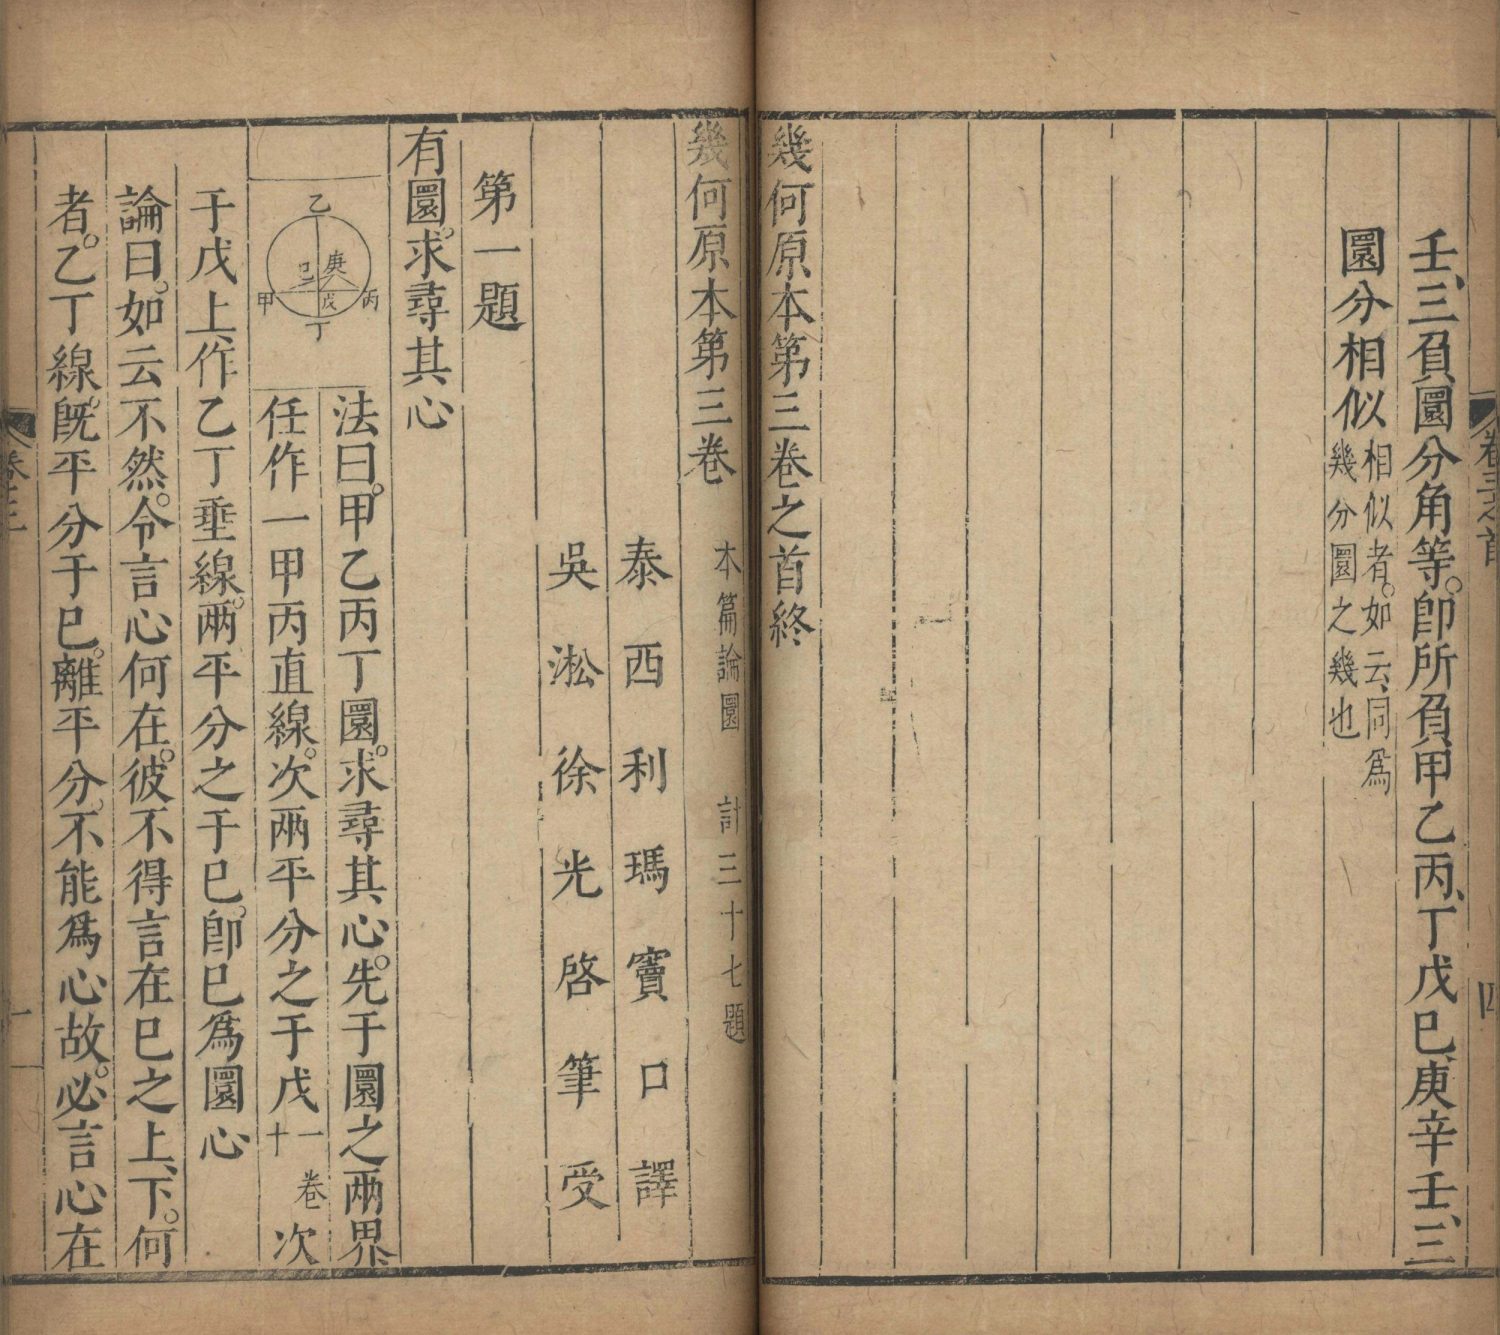 壬、三負圜分角等。卽所負甲乙丙、丁戊巳、庚辛壬、三
圜分相似相似者。如云、同爲幾分圜之幾也
幾何原本第三卷之首終
幾何原本第三卷 本篇論圜 計三十七題
泰西利瑪竇口譯
吳淞徐光啓筆受
第一題
有圜。求尋其心
法曰。甲乙丙丁圜。求尋其心。先于圜之兩界
任作一甲丙直線。次兩平分之于戊一卷十次
于戊上、作乙丁垂線。兩平分之于巳。卽巳爲圜心
論曰。如云不然。令言心何在。彼不得言在巳之上、下。何
者。乙丁線。旣平分于巳。離平分。不能爲心故。必言心在
乙
庚
巳
甲
戊
丙
丁
卷三之首
四
卷三
一